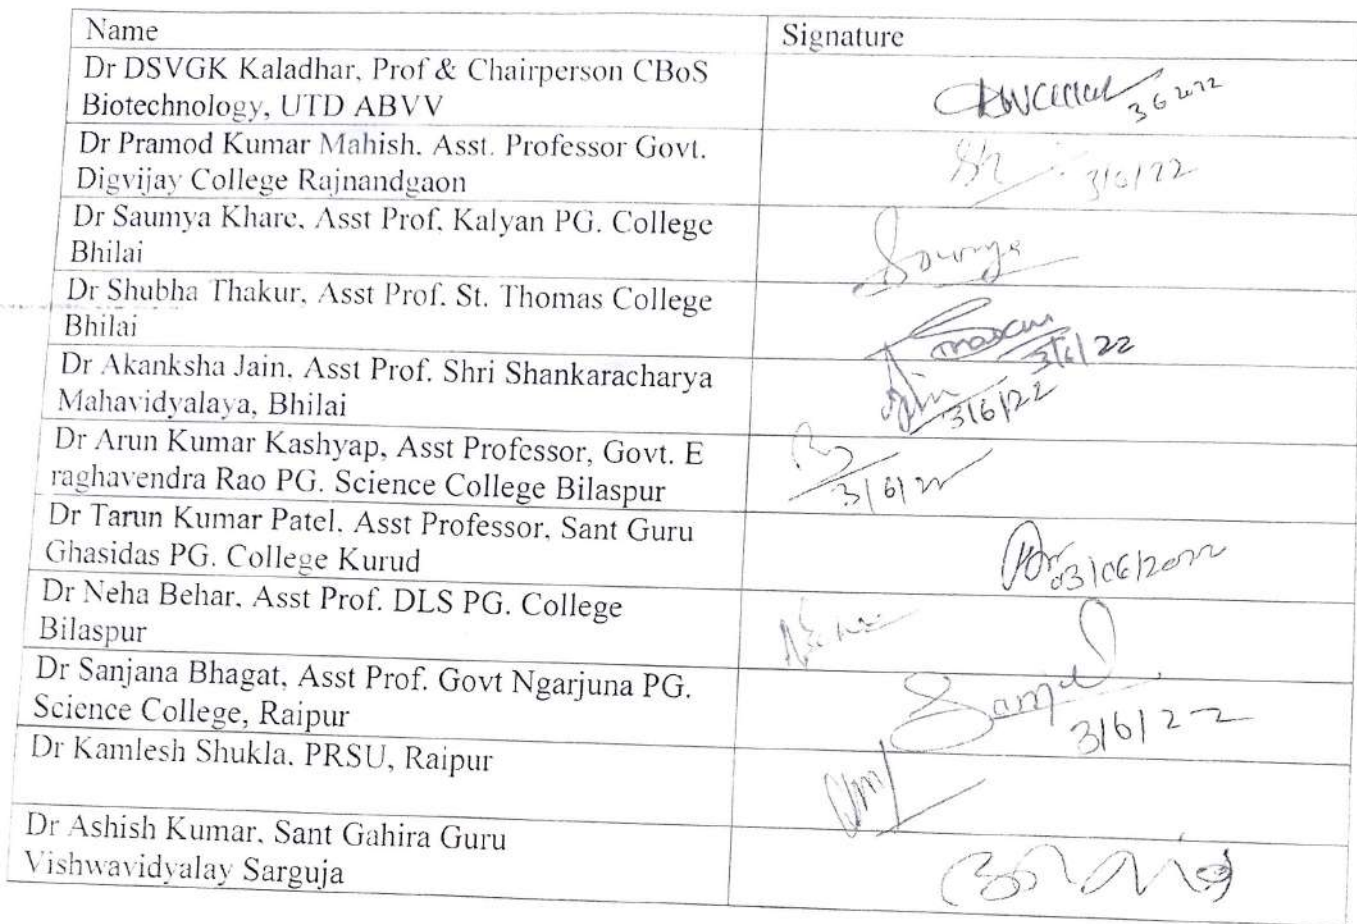 Name
Signature
Dr DSVGK Kaladhar, Prof & Chairperson CBoS
Biotechnology, UTD ABVV
3 6 2022
Dr Pramod Kumar Mahish. Asst. Professor Govt.
Digvijay College Rajnandgaon
3/6/22
Dr Saumya Khare, Asst Prof. Kalyan PG. College
Bhilai
Soumya
Dr Shubha Thakur, Asst Prof. St. Thomas College
Bhilai
3/6/22
Dr Akanksha Jain. Asst Prof. Shri Shankaracharya
Mahavidyalaya, Bhilai
3/6/22
Dr Arun Kumar Kashyap, Asst Professor, Govt. E
raghavendra Rao PG. Science College Bilaspur
3/6/22
Dr Tarun Kumar Patel. Asst Professor, Sant Guru
Ghasidas PG. College Kurud
03/06/2022
Dr Neha Behar, Asst Prof. DLS PG. College
Bilaspur
Dr Sanjana Bhagat, Asst Prof. Govt Ngarjuna PG.
Science College, Raipur
3/6/22
Dr Kamlesh Shukla. PRSU, Raipur
Dr Ashish Kumar. Sant Gahira Guru
Vishwavidyalay Sarguja